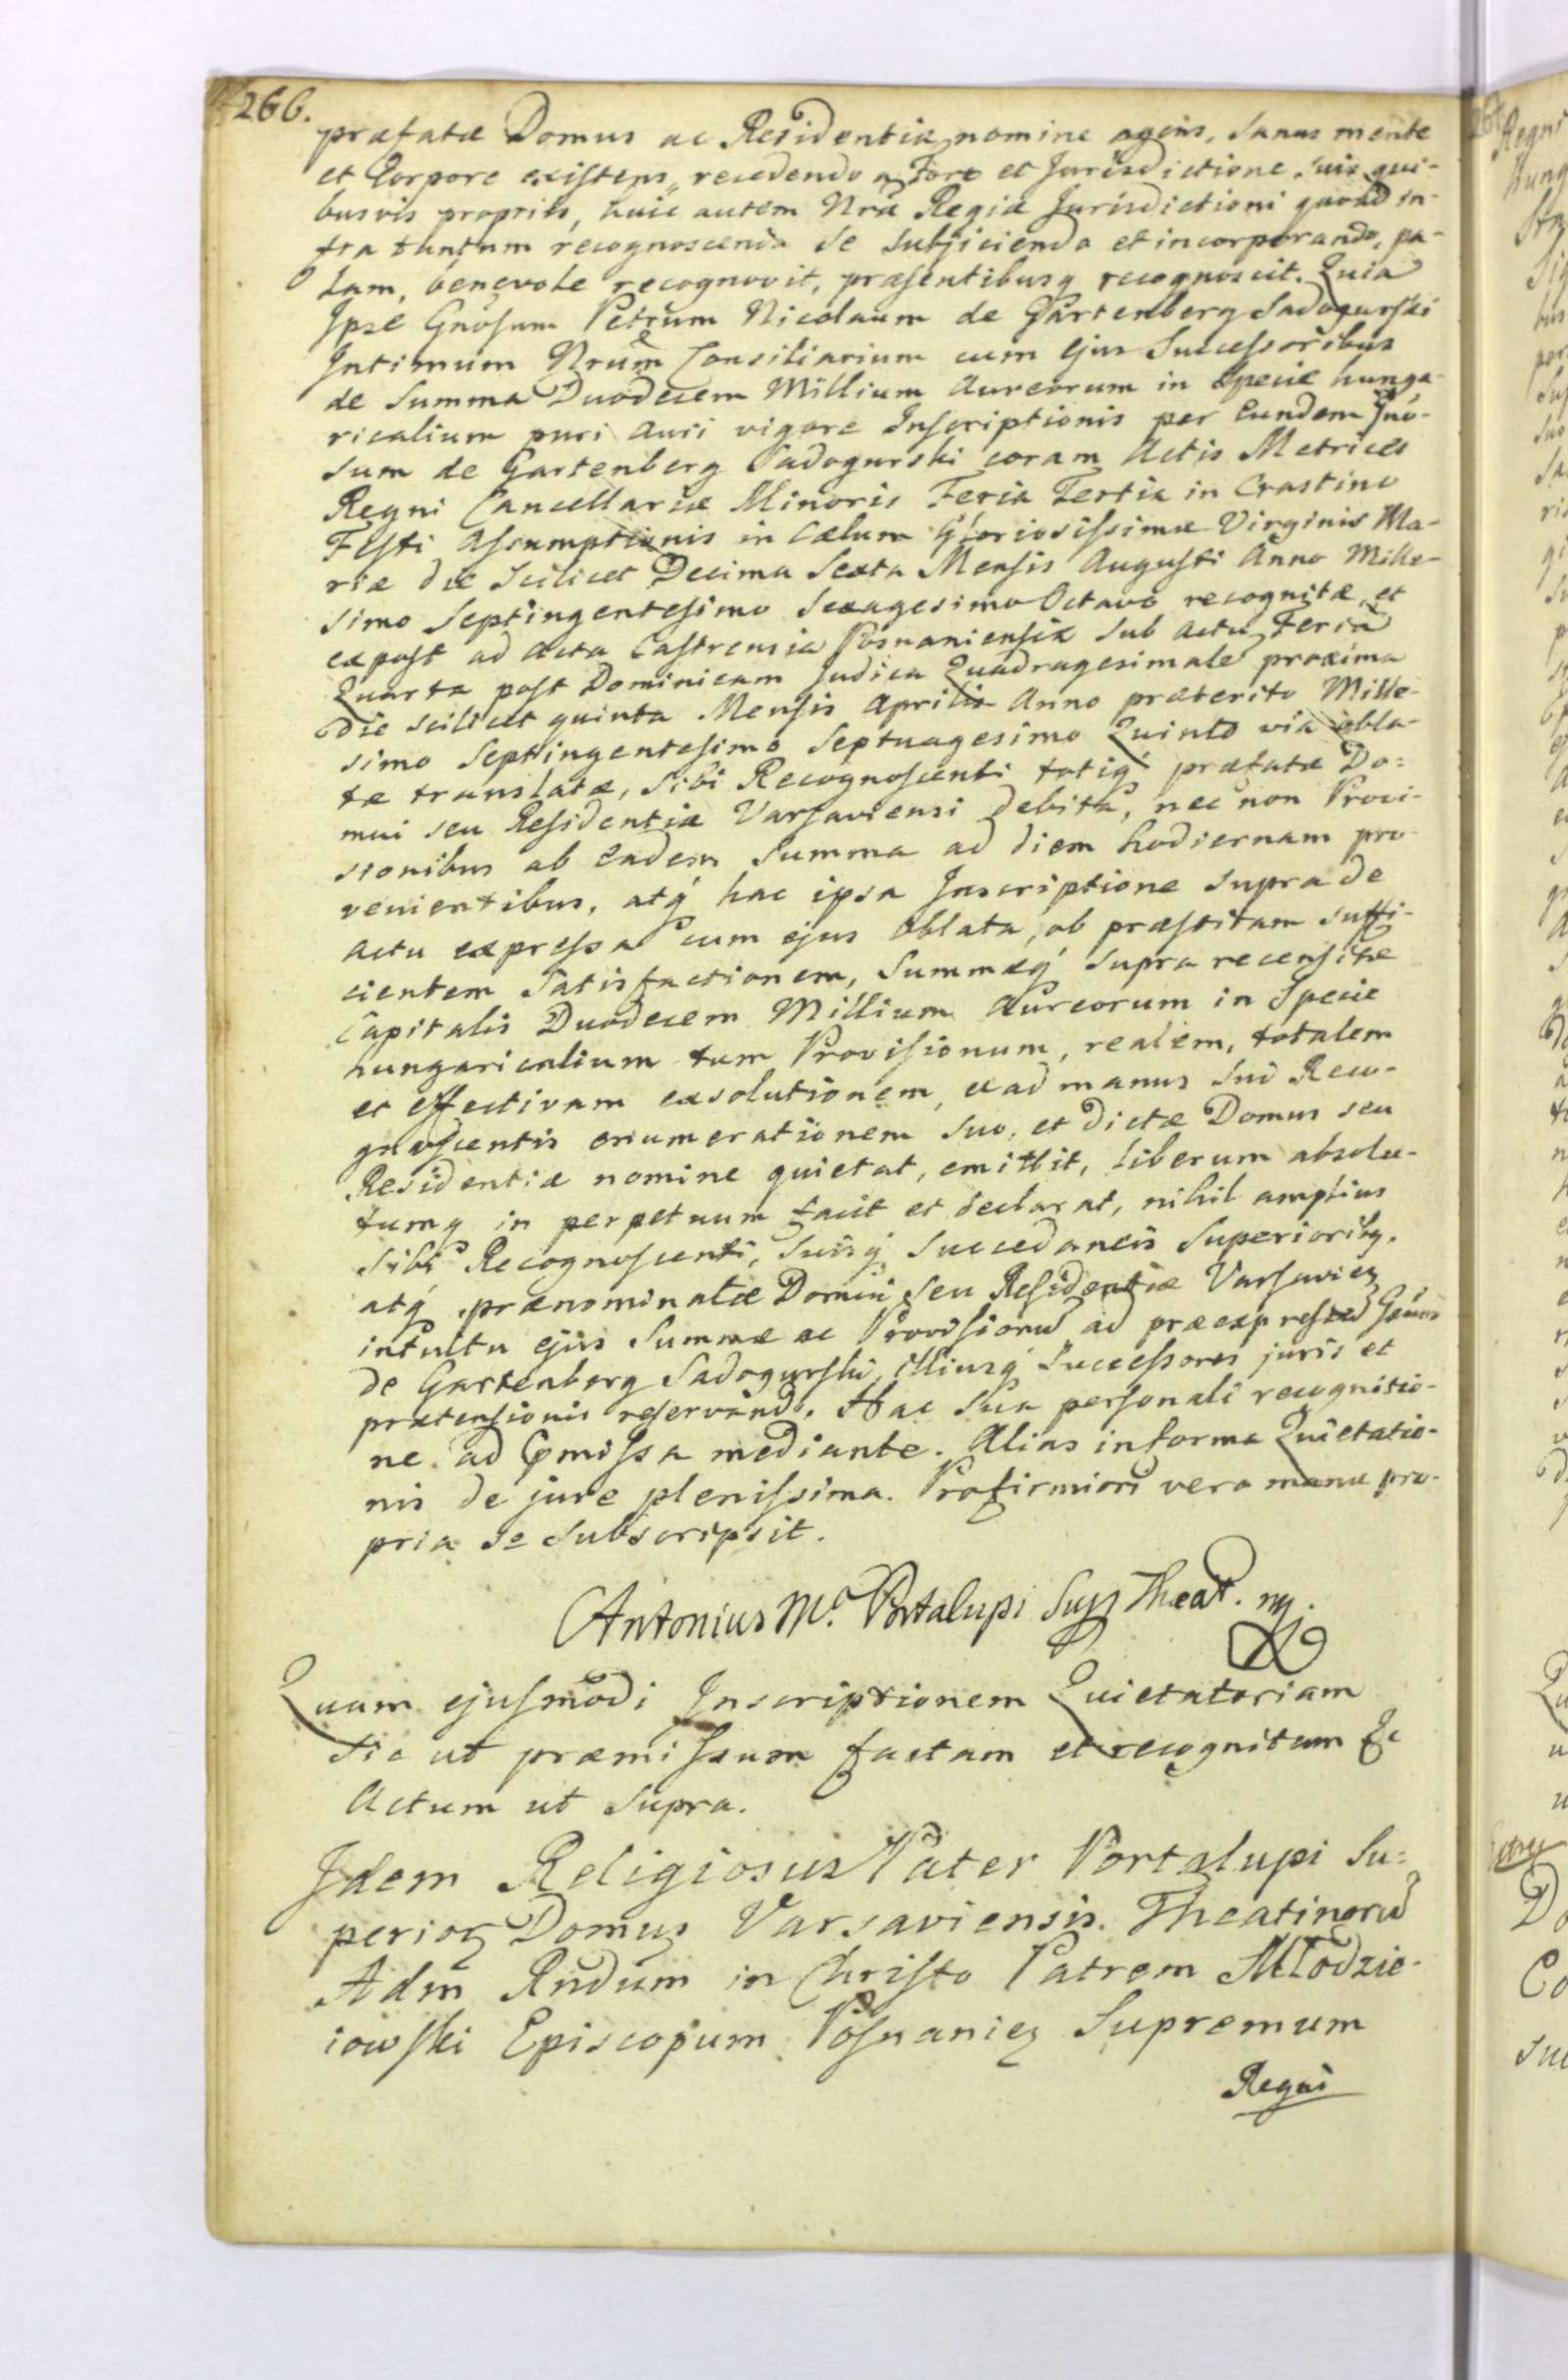 266.
præfatæ Domus ac Residentiæ nomine agens, Sanus mente
et Corpore existens, recedendo a Foro et Jurisdictione suis qui-
busvis propriis, huic autem Nræ Regiæ Jurisdictioni quoad in-
fra tantum recognoscenda se subjiciendo et incorporando, pa-
lam, benevole recognovit, præsentibusq recognoscit. Quia
Ipse Gnösum Petrum Nicolaum de Gartenberg Sadogurski
Intimum Nrum Consiliarium cum ejus Successoribus
de Summa Duodecem Millium Aureorum in Specie hunga-
ricalium puri Auri vigore Inscriptionis per Eundem Gnö-
sum de Gartenberg Sadogurski coram Actis Metrices
Regni Cancellariæ Minoris Feria Tertia in Crastino
Festi Assumptionis in Cælum Gloriosissimæ Virginis Ma-
riæ die Scilicet Decima Sexta Mensis Augusti Anno Mille-
simo Septingentesimo Sexagesimo Octavo recognitæ, et
expost ad Acta Castrensia Posnaniensia sub Actu Feria
Quarta post Dominicam Judica Quadragesimale proxima
die scilicet quinta Mensis Aprilis Anno præterito Mille-
simo Septingentesimo Septuagesimo Quinto via obla-
tæ translatæ, sibi Recognoscenti totiq præfatæ Do=
mui seu Residentiæ Varsaviensi debita, nec non Provi-
sionibus ab eadem Summa ad diem hodiernam pro-
venientibus, atq hac ipsa Inscriptione supra de
actu expressa cum ejus Oblata, ob præstitam suffi-
cientem Satisfactionem, Summæq supra recensitæ
Capitalis Duodecem Millium Aureorum in Specie
hungaricalium tum Provisionum, realem, totalem
et effectivam exsolutionem, et ad manus sui Reco-
gnoscentis enumerationem suo, et dictæ Domus seu
Residentiæ nomine quietat, emittit, liberum absolu-
tumq in perpetuum facit et declarat, nihil amplius
Sibi Recognoscenti, suisq Succedaneis Superioribq.
atq prænominatæ Domui seu Residentiæ Varsavien
intuitu ejus Summæ ac Provisionu ad præexpressu Gnum
de Gartenberg Sadogurski, illiusq Successores juris et
prætensionis reservando. Hac sua personali recognitio-
ne ad præmissa mediante. Alias in forma Quietatio-
nis de jure plenissima. Pro firmiori vero manu pro-
pria se subscripsit.
Antonius M.ª Portalupi Sup Theat. mp.
Quam ejusmodi Inscriptionem Quietatoriam
sic ut præmissum factam et recognitam &c
Actum ut supra.
Idem Religiosus Pater Portalupi Su=
perior Domus Varsaviensis Theatinoru
Adm Rndum in Christo Patrem Młodzie-
iowski Episcopum Posnanien Supremum
Regni